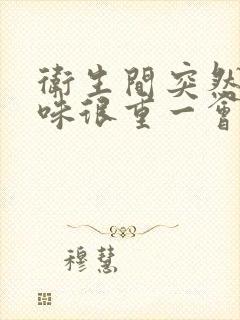 衛生間突然
味很重一會
穆慧